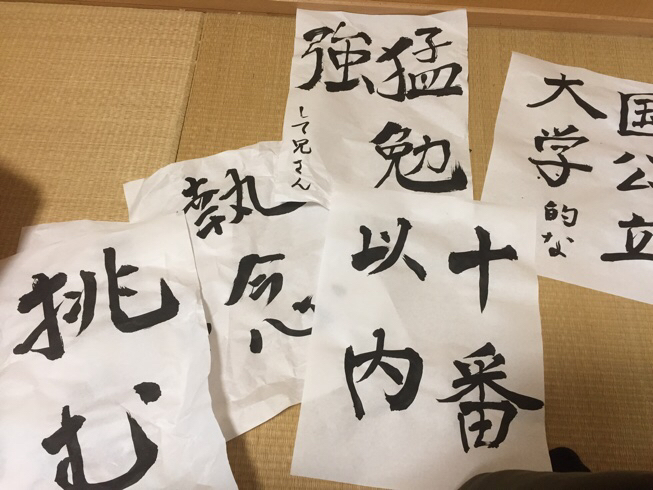 国公立
大学的な
猛勉
強して兄さん
十番
以内
執念
挑む